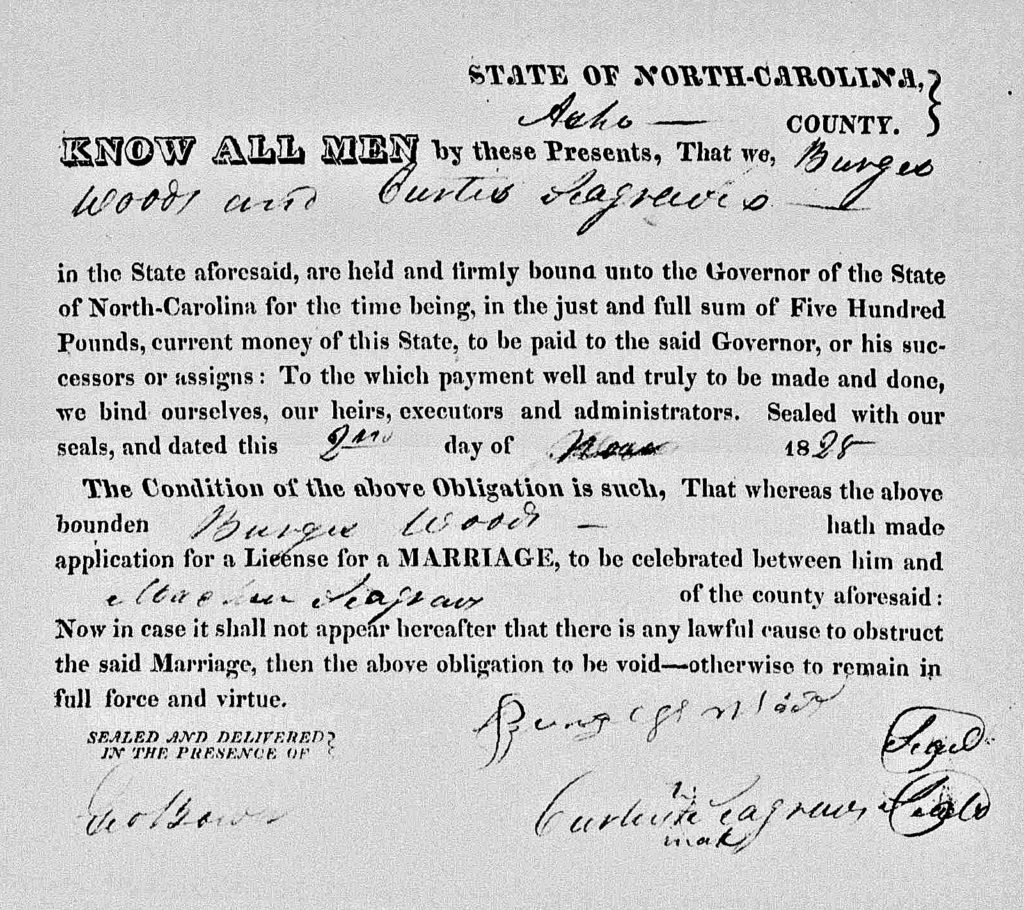 STATE OF NORTH-CAROLINA,
Ashe COUNTY.
KNOW ALL MEN by these Presents, That we, Burges
Woods and Curtis Seagraves
in the State aforesaid, are held and firmly bound unto the Governor of the State
of North-Carolina for the time being, in the just and full sum of Five Hundred
Pounds, current money of this State, to be paid to the said Governor, or his suc-
cessors or assigns: To the which payment well and truly to be made and done,
we bind ourselves, our heirs, executors and administrators. Sealed with our
seals, and dated this 2nd day of 1828
The Condition of the above Obligation is such, That whereas the above
bounden Burges Woods hath made
application for a License for a MARRIAGE, to be celebrated between him and
Seagraves of the county aforesaid:
Now in case it shall not appear hereafter that there is any lawful cause to obstruct
the said Marriage, then the above obligation to be void—otherwise to remain in
full force and virtue.
SEALED AND DELIVERED
IN THE PRESENCE OF
Burgess Seal
Curtis Seagraves Seal
mark